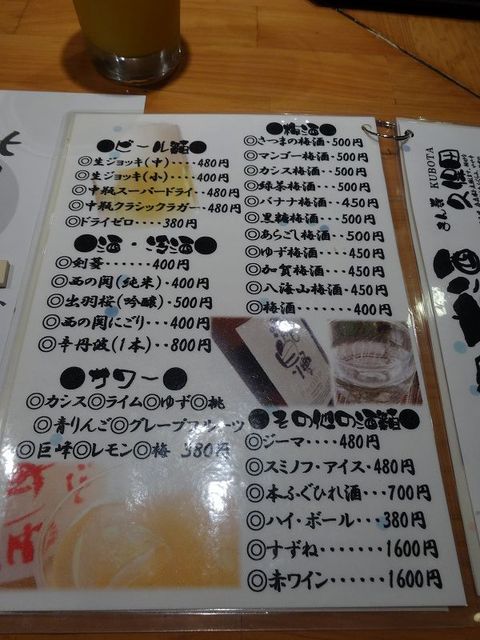 ●ビール類●
◎生ジョッキ(中)････480円
◎生ジョッキ(小)････400円
◎中瓶スーパードライ･･480円
◎中瓶クラシックラガー･･480円
◎ドライゼロ････380円
●酒・冷酒●
◎剣菱･･････400円
◎西の関(純米)･･400円
◎出羽桜(吟醸)･500円
◎西の関にごり･･･400円
◎辛丹波(1本)･･800円
●サワー●
◎カシス◎ライム◎ゆず◎桃
◎青りんご◎グレープフルーツ
◎巨峰◎レモン◎梅 380円
●梅酒●
◎さつまの梅酒･500円
◎マンゴー梅酒･500円
◎カシス梅酒･･500円
◎緑茶梅酒･･･500円
◎バナナ梅酒･･450円
◎黒糖梅酒･･･500円
◎あらごし梅酒･･500円
◎ゆず梅酒･･･450円
◎加賀梅酒･･･450円
◎八海山梅酒･450円
◎梅酒･･････400円
●その他の酒類●
◎ジーマ････480円
◎スミノフ・アイス･480円
◎本ふぐひれ酒･･･700円
◎ハイ・ボール･･･380円
◎すずね･･････1600円
◎赤ワイン･･････1600円
KUBOTA
久保田